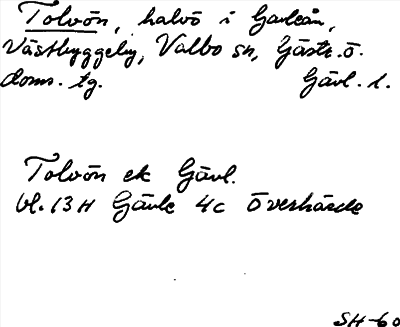 Tolvön, halvö i Gavleån,
Västbyggeby, Valbo sn, Gästr. ö.
doms. tg. Gävl. l.
Tolvön ek Gävl.
bl. 13 H Gävle 4c Överhärde
SH-60